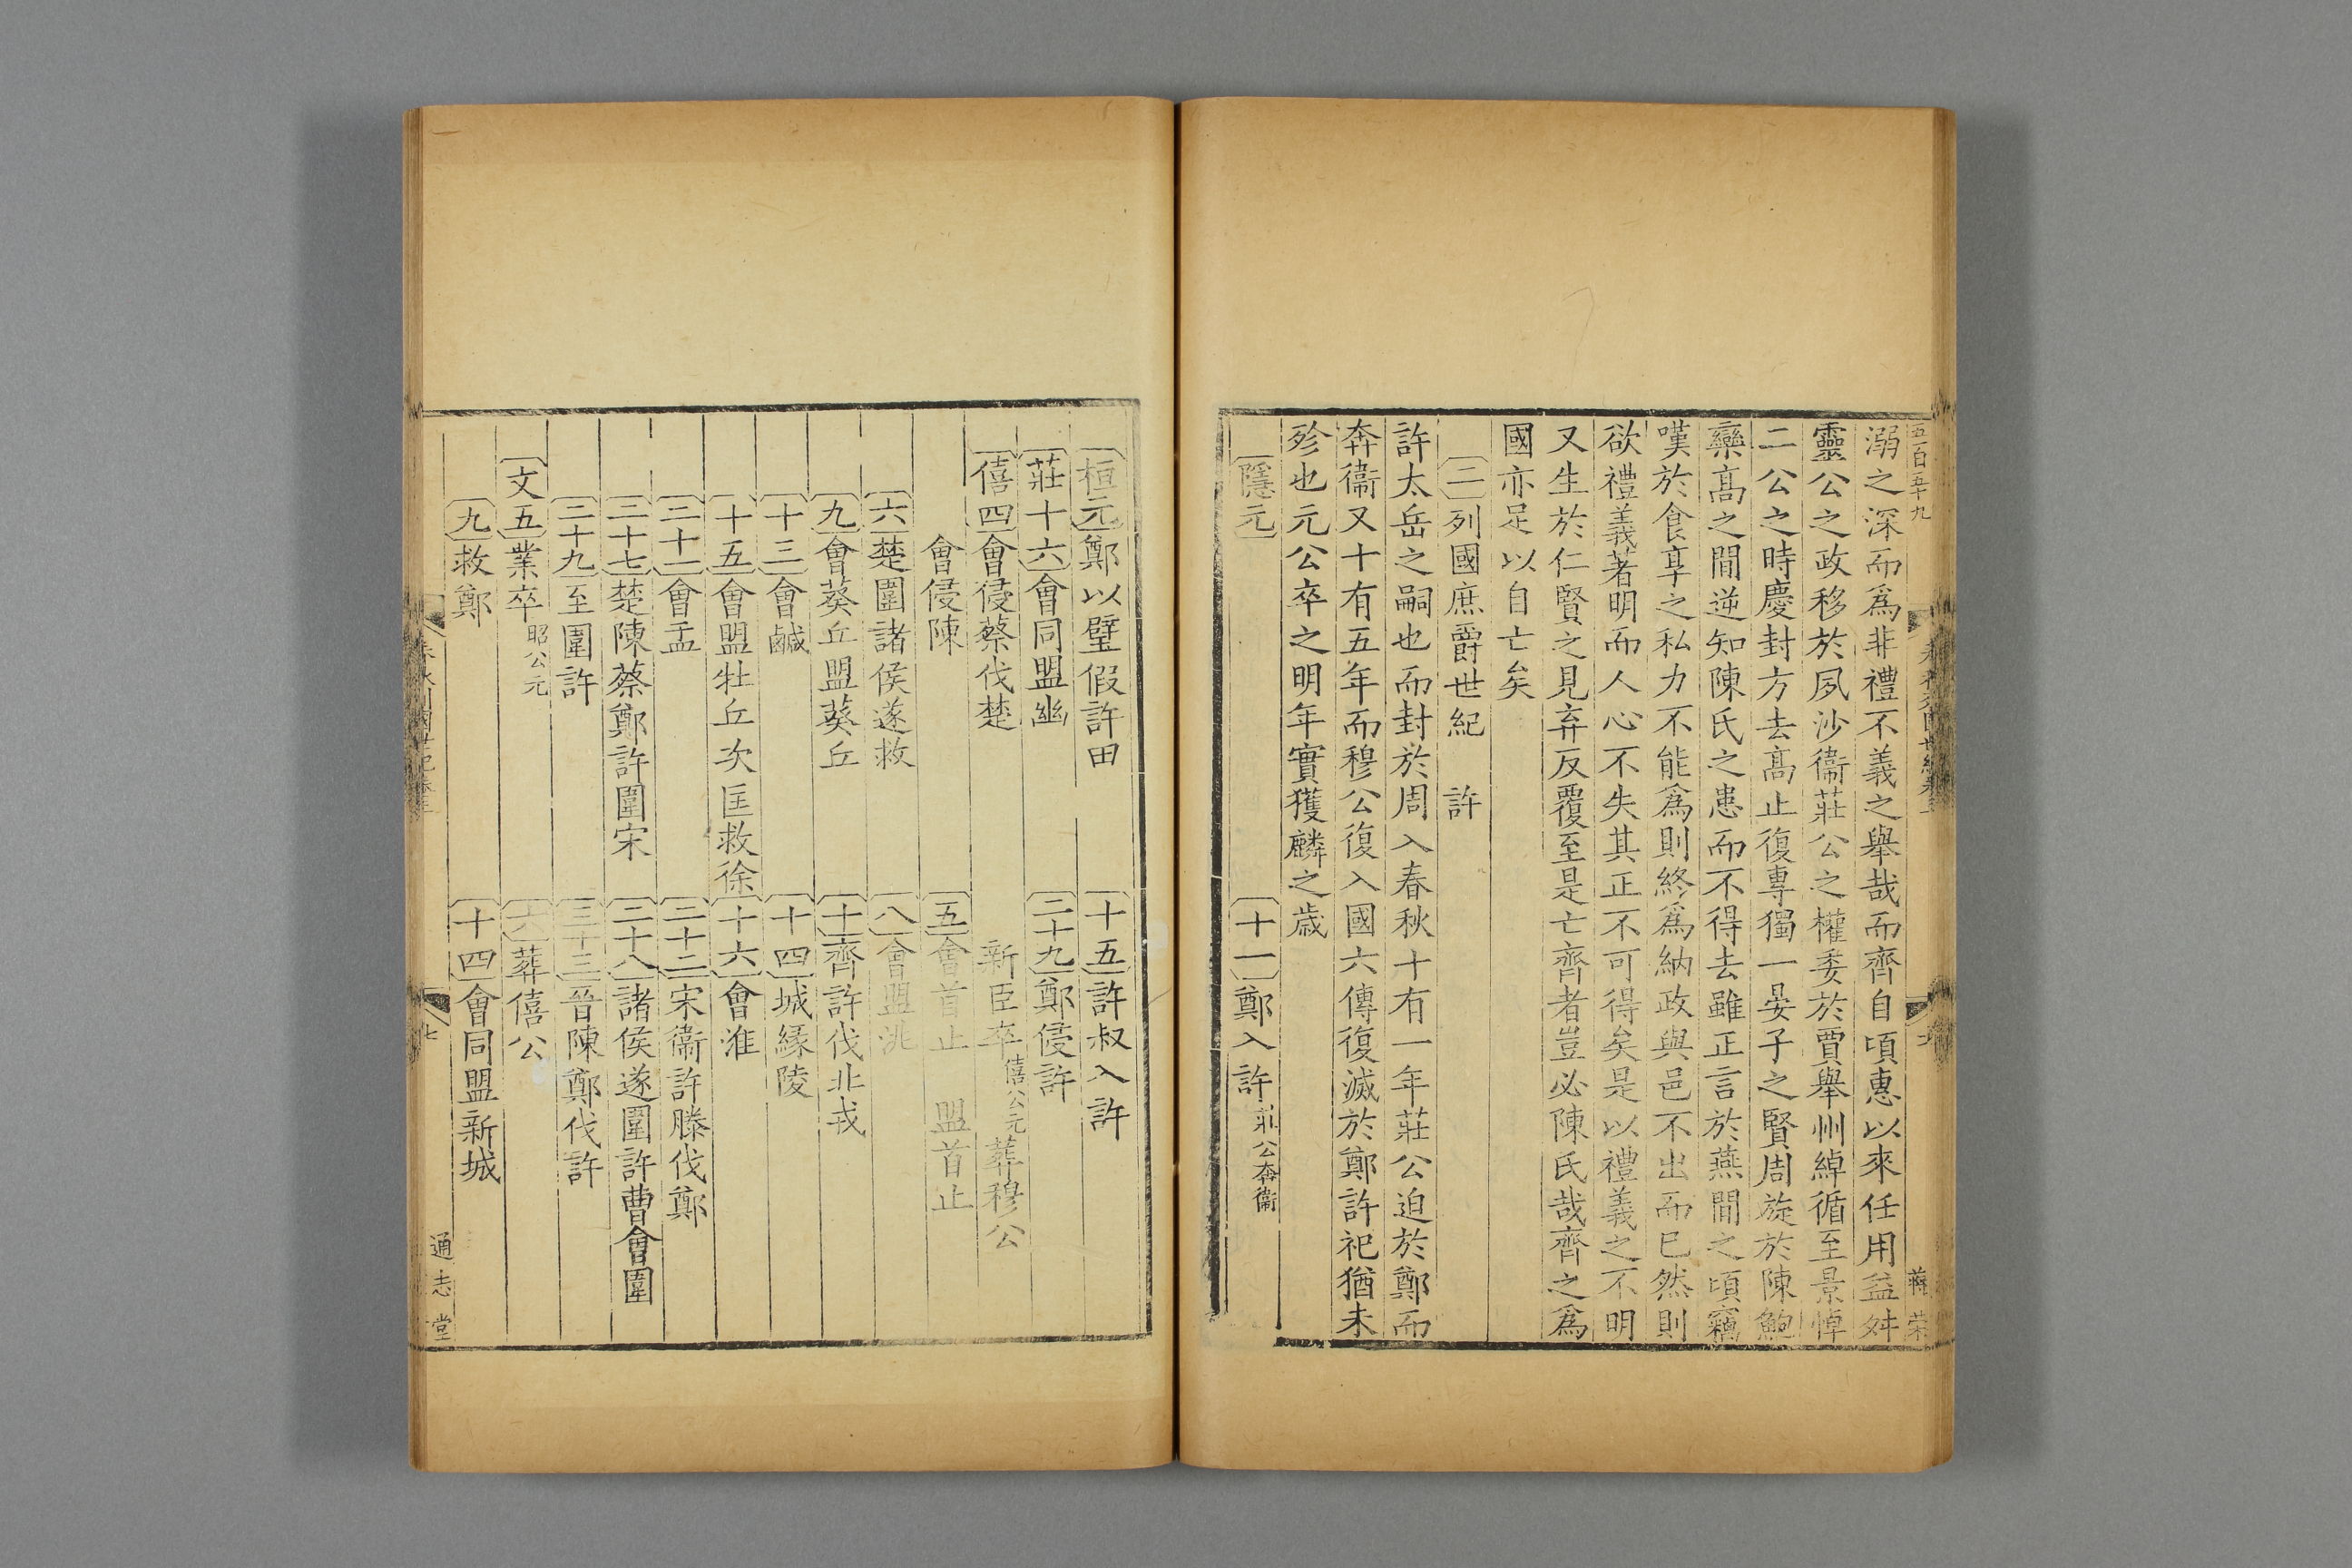 五百五十九
蔣榮
溺之深而爲非禮不義之舉哉而齊自頃惠以來任用益舛
靈公之政移於夙沙衞莊公之權委於賈舉州綽循至景悼
二公之時慶封方去高止復專獨一晏子之賢周旋於陳鮑
欒高之間逆知陳氏之患而不得去雖正言於燕間之頃竊
嘆於食享之私力不能爲則終爲納政與邑不出而已然則
欲禮義著明而人心不失其正不可得矣是以禮義之不明
又生於仁賢之見弃反覆至是亡齊者豈必陳氏哉齊之爲
國亦足以自亡矣
二列國庶爵世紀 許
許太岳之嗣也而封於周入春秋十有一年莊公迫於鄭而
奔衞又十有五年而穆公復入國六傳復滅於鄭許祀猶未
殄也元公卒之明年實獲麟之歲
隱元 十一鄭入許莊公奔衞
桓元鄭以璧假許田 十五許叔入許
莊十六會同盟幽 二十九鄭侵許
僖四會侵蔡伐楚 新臣卒僖公元葬穆公
會侵陳 五會首止 盟首止
六楚圍諸侯遂救 八會盟洮
九會葵丘盟葵丘 十齊許伐北戎
十三會鹹 十四城緣陵
十五會盟牡丘次匡救徐 十六會淮
二十一會盂 二十二宋衞許滕伐鄭
二十七楚陳蔡鄭許圍宋 二十八諸侯遂圍許曹會圍
二十九至圍許 三十三晉陳鄭伐許
文五業卒昭公元 六葬僖公
九救鄭 十四會同盟新城
七
通志堂